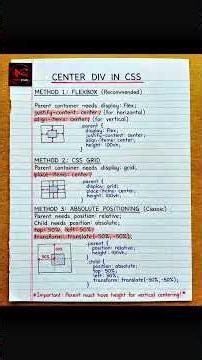 CENTER DIV IN CSS
METHOD 1: FLEXBOX (Recommended)
Parent container needs display: flex;
justify-content: center; (for horizontal)
align-items: center; (for vertical)
.parent {
display: flex;
justify-content: center;
align-items: center;
height: 100vh;
}
METHOD 2: CSS GRID
Parent container needs display: grid;
place-items: center;
.parent {
display: grid;
place-items: center;
height: 100vh;
}
METHOD 3: ABSOLUTE POSITIONING (Classic)
Parent needs position: relative;
Child needs position: absolute;
top: 50%, left: 50%;
transform: translate(-50%,-50%);
.parent {
position: relative;
height: 100vh;
}
.child {
position: absolute;
top: 50%;
left: 50%;
transform: translate(-50%,-50%);
}
*Important: Parent must have height for vertical centering!*